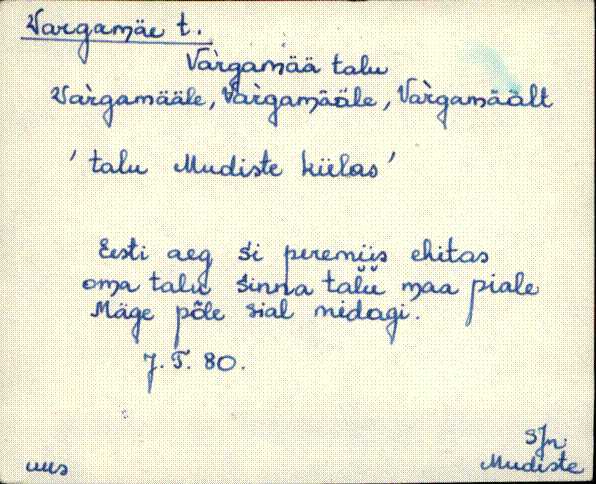 Vargamäe t.
Va̭rgamää talu
Vàrgamääle, Vàrgamääle, Vàrgamäält
' talu Mudiste külas '
Eesti aeg śi peremiis ehitas
oma talu śinna talu maa piale
Mäge põle sial midagi.
J. T. 80.
SJn.
uus Mudiste